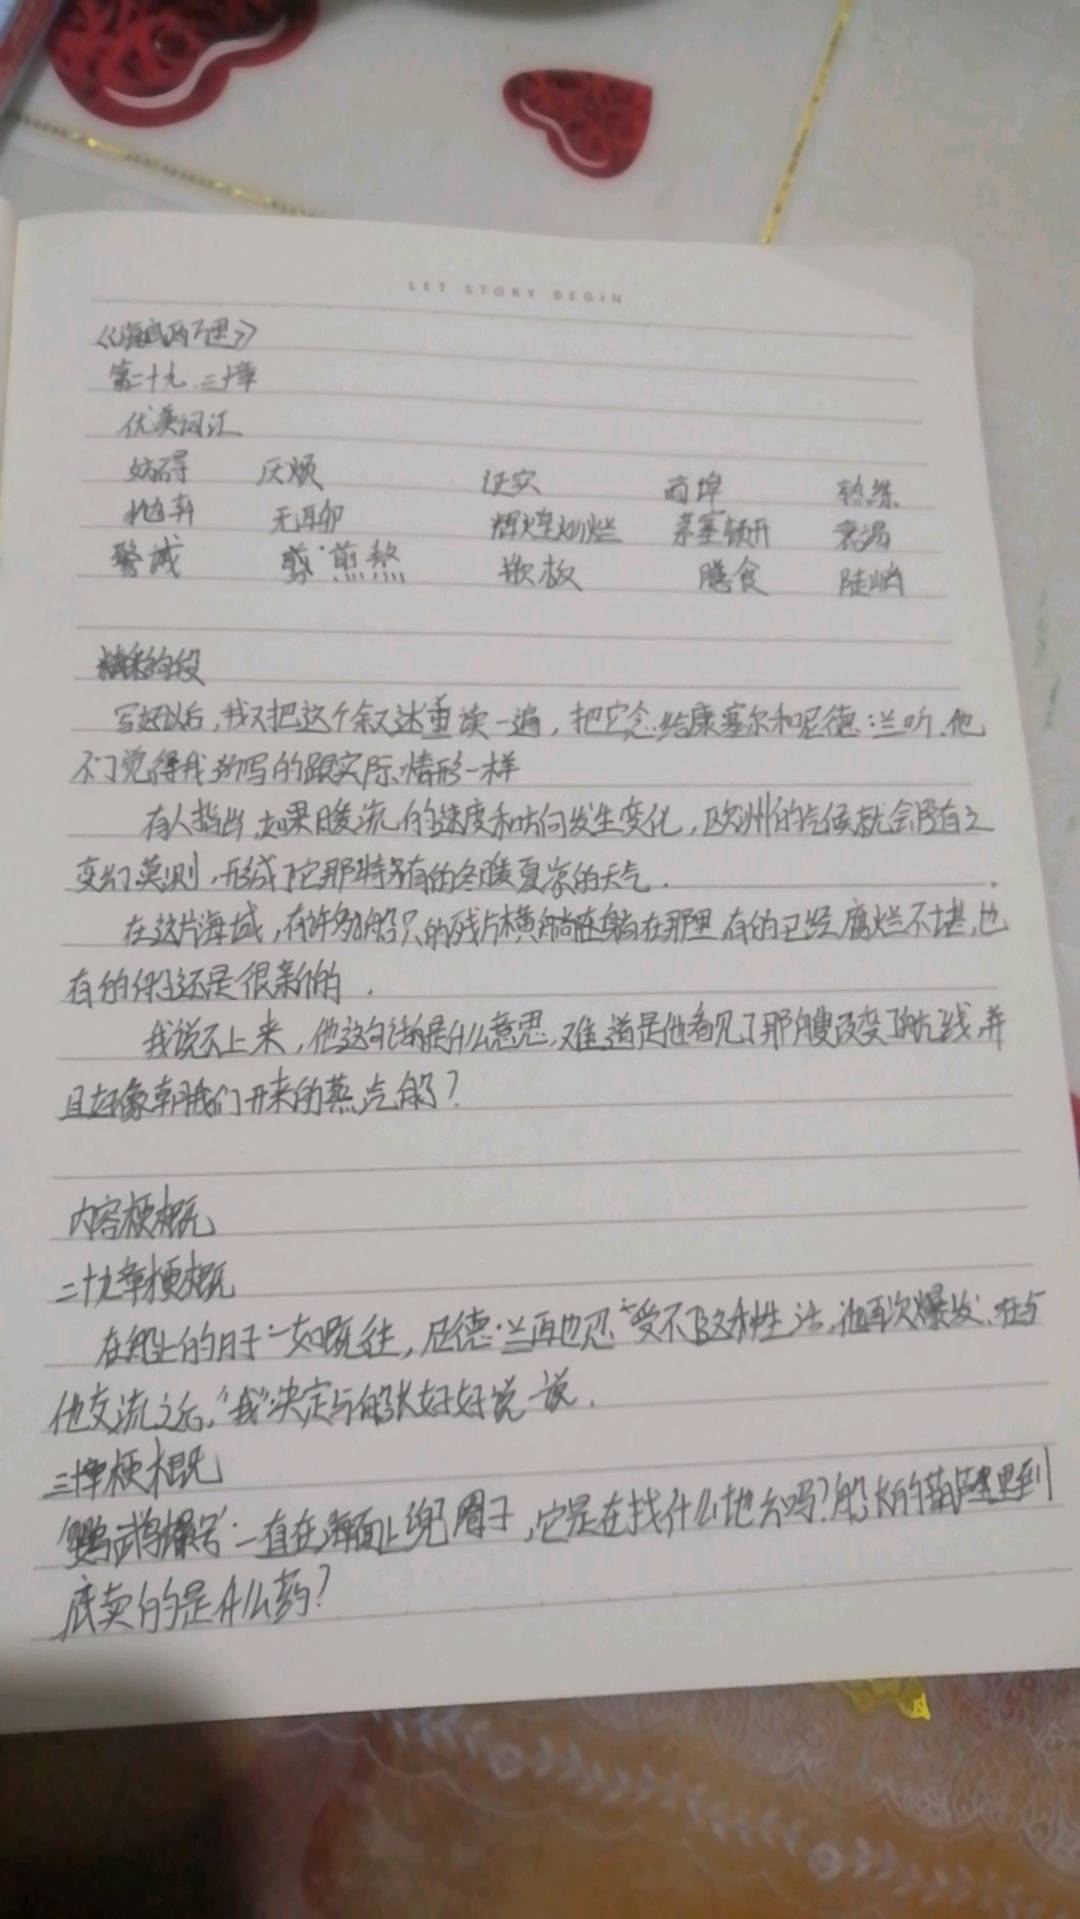 LET STORY BEGIN
《海底两万里》
第二十九、三十章
优美词汇
妨碍 厌烦 证实 商埠 熟练
抛弃 无耻 辉煌灿烂 茅塞顿开 衰竭
警戒 煎熬 歉 膳食 陡峭
精彩片段
写好以后,我又把这个叙述重读一遍,把它念给康塞尔和尼德·兰听.他
们觉得我所写的跟实际情形一样
有人指出,如果暖流的速度和方向发生变化,欧洲的气候就会随之
变幻莫测,形成了它那特有的冬暖夏凉的天气.
在这片海域,有许多船只的残片横躺在那里,有的已经腐烂不堪,也
有的还是很新的.
我说不上来,他这句话的是什么意思,难道是他看见了那艘改变了航线,并
且好像朝我们开来的蒸汽船?
内容梗概
二十九章梗概
在船上的日子一如既往,尼德·兰再也忍受不了这种生活,他再次爆发.在与
他交流之后,“我”决定与船长好好说一说.
三十章梗概
鹦鹉螺号一直在海面上兜圈子,它是在找什么地方吗?船长的葫芦里到
底卖的是什么药?